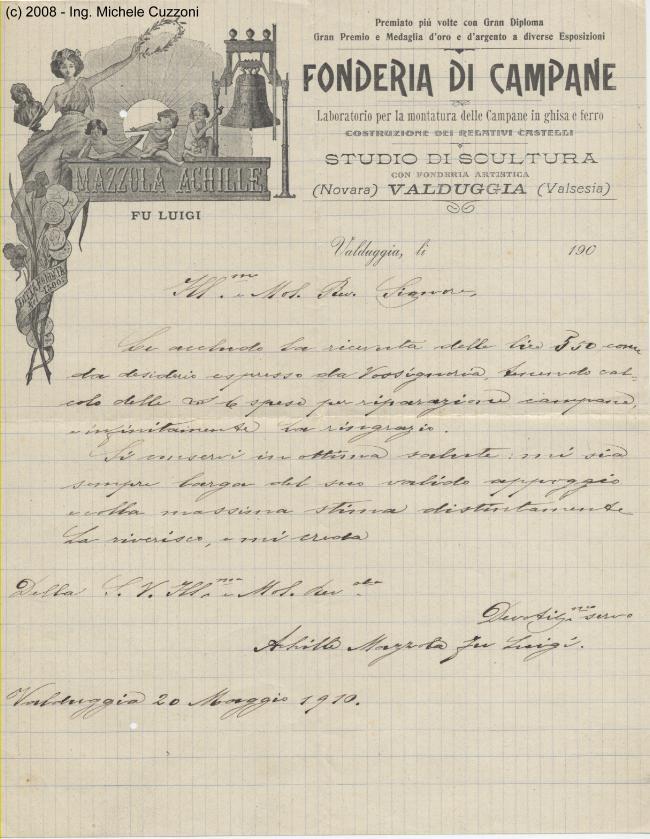 (c) 2008 - Ing. Michele Cuzzoni
Premiato più volte con Gran Diploma
Gran Premio e Medaglia d'oro e d'argento a diverse Esposizioni
FONDERIA DI CAMPANE
Laboratorio per la montatura delle Campane in ghisa e ferro
COSTRUZIONE DEI RELATIVI CASTELLI
STUDIO DI SCULTURA
CON FONDERIA ARTISTICA
(Novara) VALDUGGIA (Valsesia)
MAZZOLA ACHILLE
FU LUIGI
Valduggia, li 190
Ill.mo e Mol. Rev. Signore,
Le accludo la ricevuta delle lire 550 come
da desiderio espresso da Vossignoria, tenendo cal-
colo delle 6 spese per riparazione campane,
e infinitamente La ringrazio.
Si conservi in ottima salute: mi sia
sempre larga del suo valido appoggio
e colla massima stima distintamente
La riverisco, e mi creda
Della S. V. Ill.ma e Mol. Rev.
Devotis.mo servo
Achille Mazzola fu Luigi.
Valduggia 20 Maggio 1910.